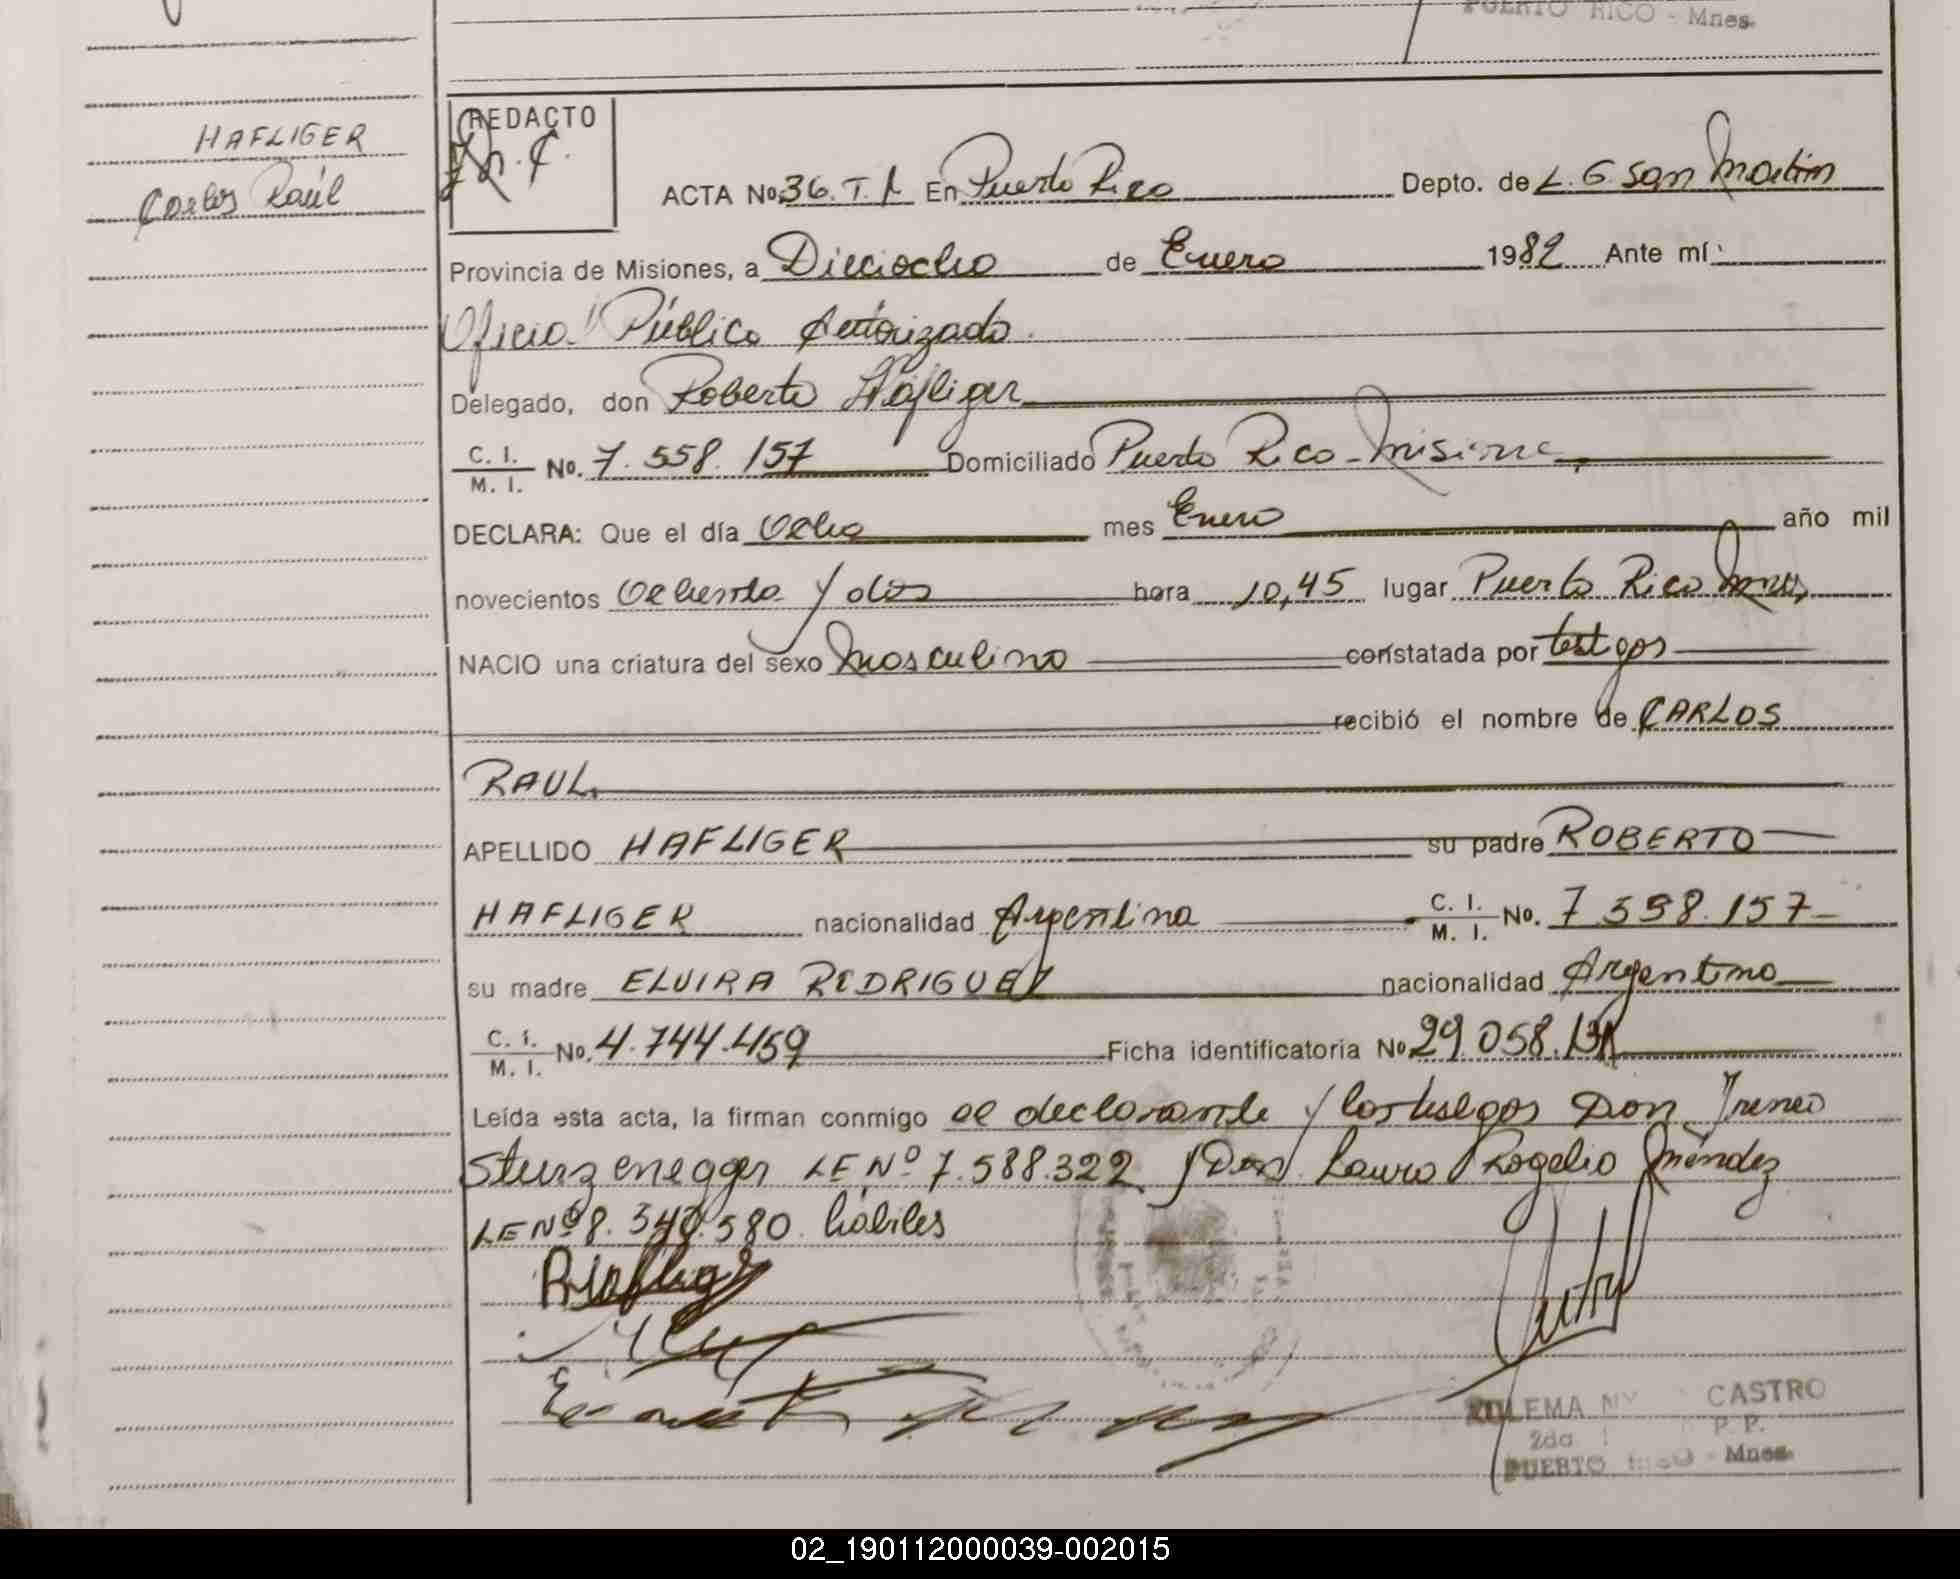 PUERTO RICO - Mnes.
HAFLIGER
Carlos Raúl
REDACTO
ACTA No. 36. T. I. En Puerto Rico Depto. de L. G. San Martin
Provincia de Misiones, a Dieciocho de Enero 1982 Ante mí:
Oficial Público Autorizado.
Delegado, don Roberto Häfliger
C. I.
M. I. No. 7.558.157 Domiciliado Puerto Rico - Misiones,
DECLARA: Que el día Ocho mes Enero año mil
novecientos Ochenta y dos hora 10,45 lugar Puerto Rico Mnes,
NACIO una criatura del sexo Masculino constatada por testigos
recibió el nombre de CARLOS
RAUL.
APELLIDO HAFLIGER su padre ROBERTO
HAFLIGER nacionalidad Argentina C. I.
M. I. No. 7.558.157
su madre ELVIRA RODRIGUEZ nacionalidad Argentina
C. I.
M. I. No. 4.744.459 Ficha identificatoria No 29.058.131
Leída esta acta, la firman conmigo el declarante y los testigos Don Ireneo
Sturzenegger LE Nº 7.588.322 y Don Lauro Rogelio Méndez
LE Nº 8.540.580. hábiles
CASTRO
P. P.
2da
PUERTO RICO - Mnes.
02_190112000039-002015